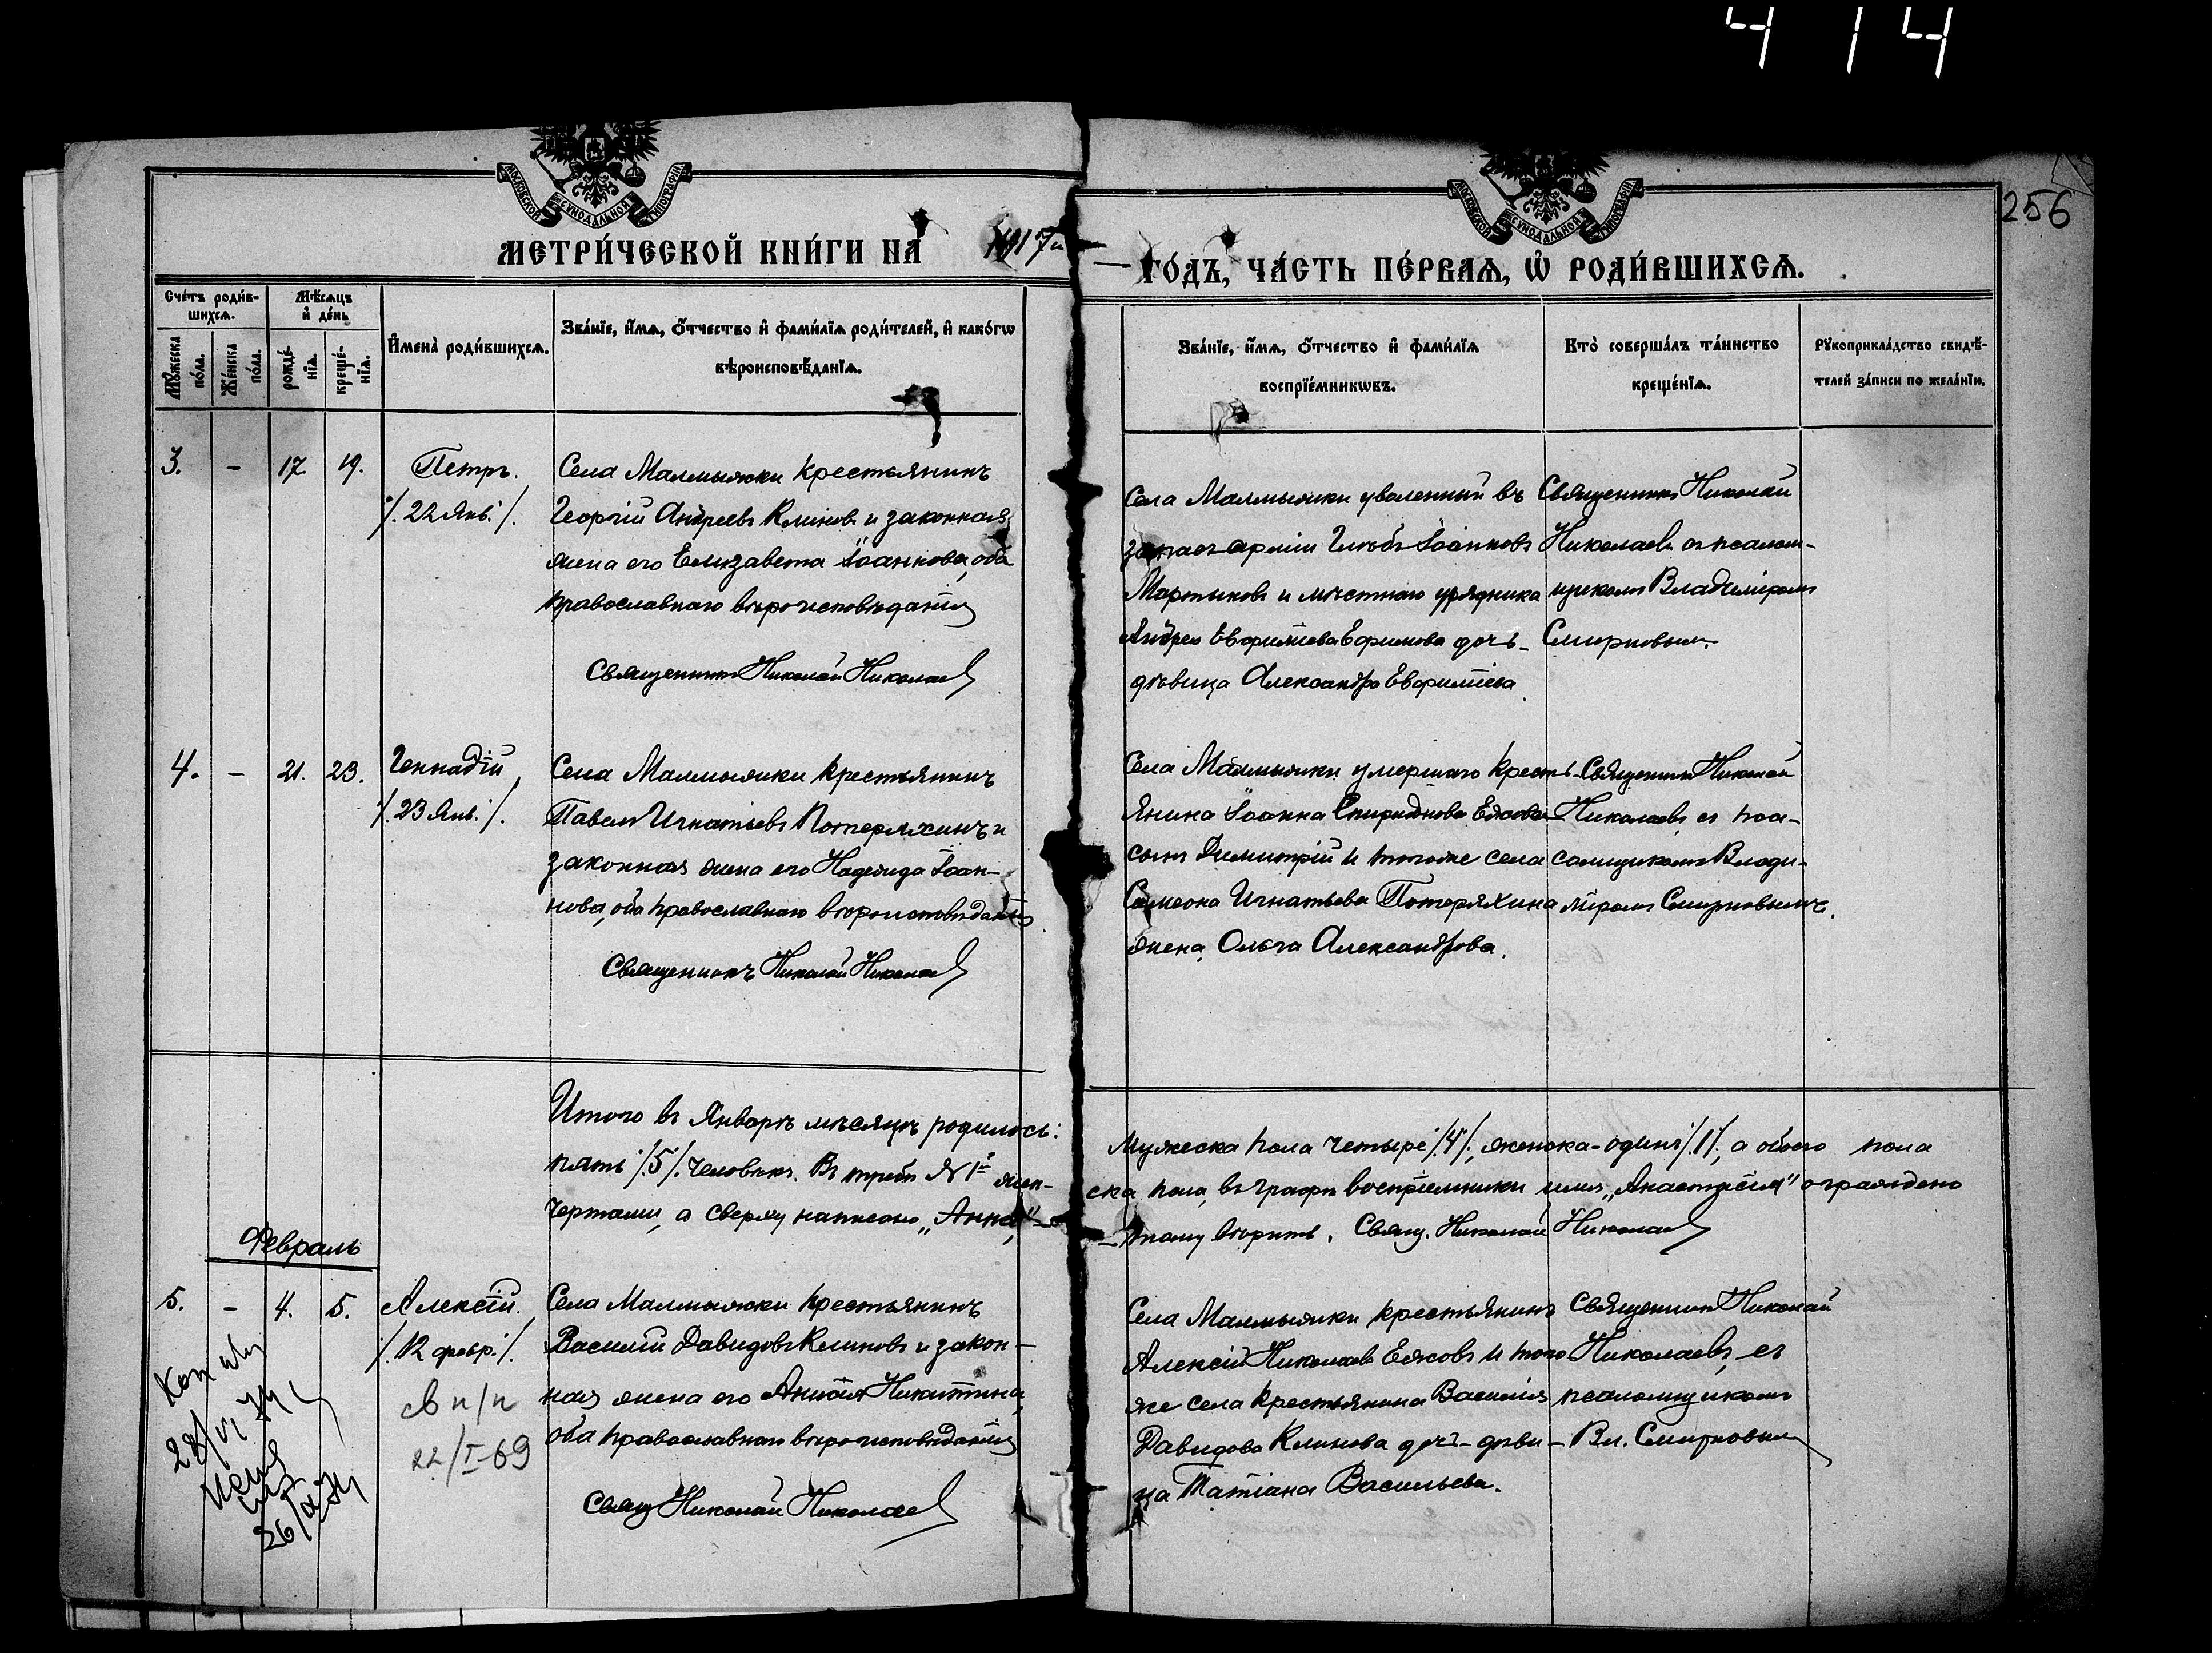 4 14
256
МОСКОВСКОЙ СѴНОДАЛЬНОЙ ТИПОГРАФІИ
МОСКОВСКОЙ СѴНОДАЛЬНОЙ ТИПОГРАФІИ
МЕТРИ́ЧЕСКОЙ КНИ́ГИ НА 1917й
ГО́ДЪ, ЧА́СТЬ ПЕ́РВАѦ, Ѽ РОДИ́ВШИХСѦ.
Сче́тъ роди́в-
шихсѧ.
Мꙋ́жеска по́ла.
Же́нска по́ла.
Мѣ́сѧцъ
и҆ де́нь
рожде́-
нїѧ.
креще́-
нїѧ.
И҆мена̀ роди́вшихсѧ.
Зва́нїе, и҆́мѧ, ѻ҆́тчество и҆ фами́лїѧ роди́телей, и҆ како́гѡ
вѣроисповѣ́данїѧ.
Зва́нїе, и҆́мѧ, ѻ҆́тчество и҆ фами́лїѧ
воспрїе́мникѡвъ.
Кто̀ соверша́лъ та́инство
креще́нїѧ.
Рꙋкоприкла́дство свидѣ́-
телей за́писи по жела́нїю.
3. - 17. 19.
Петръ.
/. 22 Янв. /.
Села Малмыжки крестьянинъ
Георгій Андреевъ Клиновъ и законная
жена его Елизавета Іоаннова, оба
православнаго вѣроисповѣданія
Священникъ Николай Николаевъ
Села Малмыжки уволенный въ
запасъ арміи Глѣбъ Іоанновъ
Мартыновъ и мѣстнаго урядника
Андрея Евфиміева Ефимова дочь-
дѣвица Александра Евфиміева.
Священникъ Николай
Николаевъ съ псалом-
щикомъ Владиміромъ
Смирновымъ.
4. - 21. 23.
Геннадій,
/. 23 Янв. /.
Села Малмыжки крестьянинъ
Павелъ Игнатьевъ Потеряхинъ и
законная жена его Надежда Іоан-
нова, оба православнаго вѣроисповѣданія
Священникъ Николай Николаевъ
Села Малмыжки умершаго кресть-
янина Іоанна Спиридонова Ежова
сынъ Димитрій и тогоже села
Симеона Игнатьева Потеряхина
жена, Ольга Александрова.
Священникъ Николай
Николаевъ съ пса-
ломщикомъ Влади-
міромъ Смирновымъ.
Итого въ Январѣ мѣсяцѣ родилось:
мужеска пола четыре /4/, женска-одинъ /1/, а обоего пола
пять /5/ человѣкъ. Въ № 1й жен-
ска пола, въ графѣ воспріемники имя „Анастасія" ограждено
чертами, а сверху написано „Анна,"-
- тому вѣрить. Свящ. Николай Николаевъ
Февраль
5. - 4. 5.
Алексій.
/. 12 февр. /.
Села Малмыжки крестьянинъ
Василій Давидовъ Клиновъ и закон-
ная жена его Никитина,
оба православнаго вѣроисповѣданія
Свящ Николай Николаевъ
Села Малмыжки крестьянинъ
Алексій Николаевъ Ежовъ и того
же села крестьянина Василія
Давидова Клинова дочь-дѣви-
ца Татіана Васильева.
Священникъ Николай
Николаевъ, съ
псаломщикомъ
Вл. Смирновымъ
св п/п
22/I-69